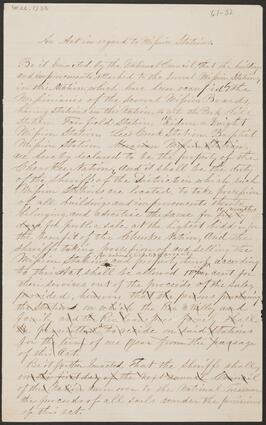 61-32
An Act in regard to Mission Stations.
Be it enacted by the National Council, That the buildings
and improvements attached to the several Mission Stations
in this Nation, which have been vacated by the
Missionaries of the several Mission Boards,
having stations in this Nation, to wit the Park Hill
Station Fairfield Station Dwight
Mission Station Lees Creek Station Baptist
Mission Station Mission Station,
are hereby declared to be the property of the
Cherokee Nation, and it shall be the duty
of the Sheriffs of the Districts in which such
Mission Stations are located to take possession
of all buildings and improvements thereto
belonging and advertise the same for
and for public sale at the highest bidder for
the benefit of the Cherokee Nation. And the
sheriff taking possession of and selling the
Mission and according to
this Act shall be allowed 10 per cent for
their services out of the proceeds of the sales,
provided, however, that the persons
the Station on which the Rev
family and the family shall
be permitted to reside on said stations
for the term of one year from the passage
of this Act.
Be it further Enacted, That the Sheriffs shall
on the first day of the next Council
of this Nation turn over to the National Treasurer
the proceeds of all sales under the provisions
of this act.